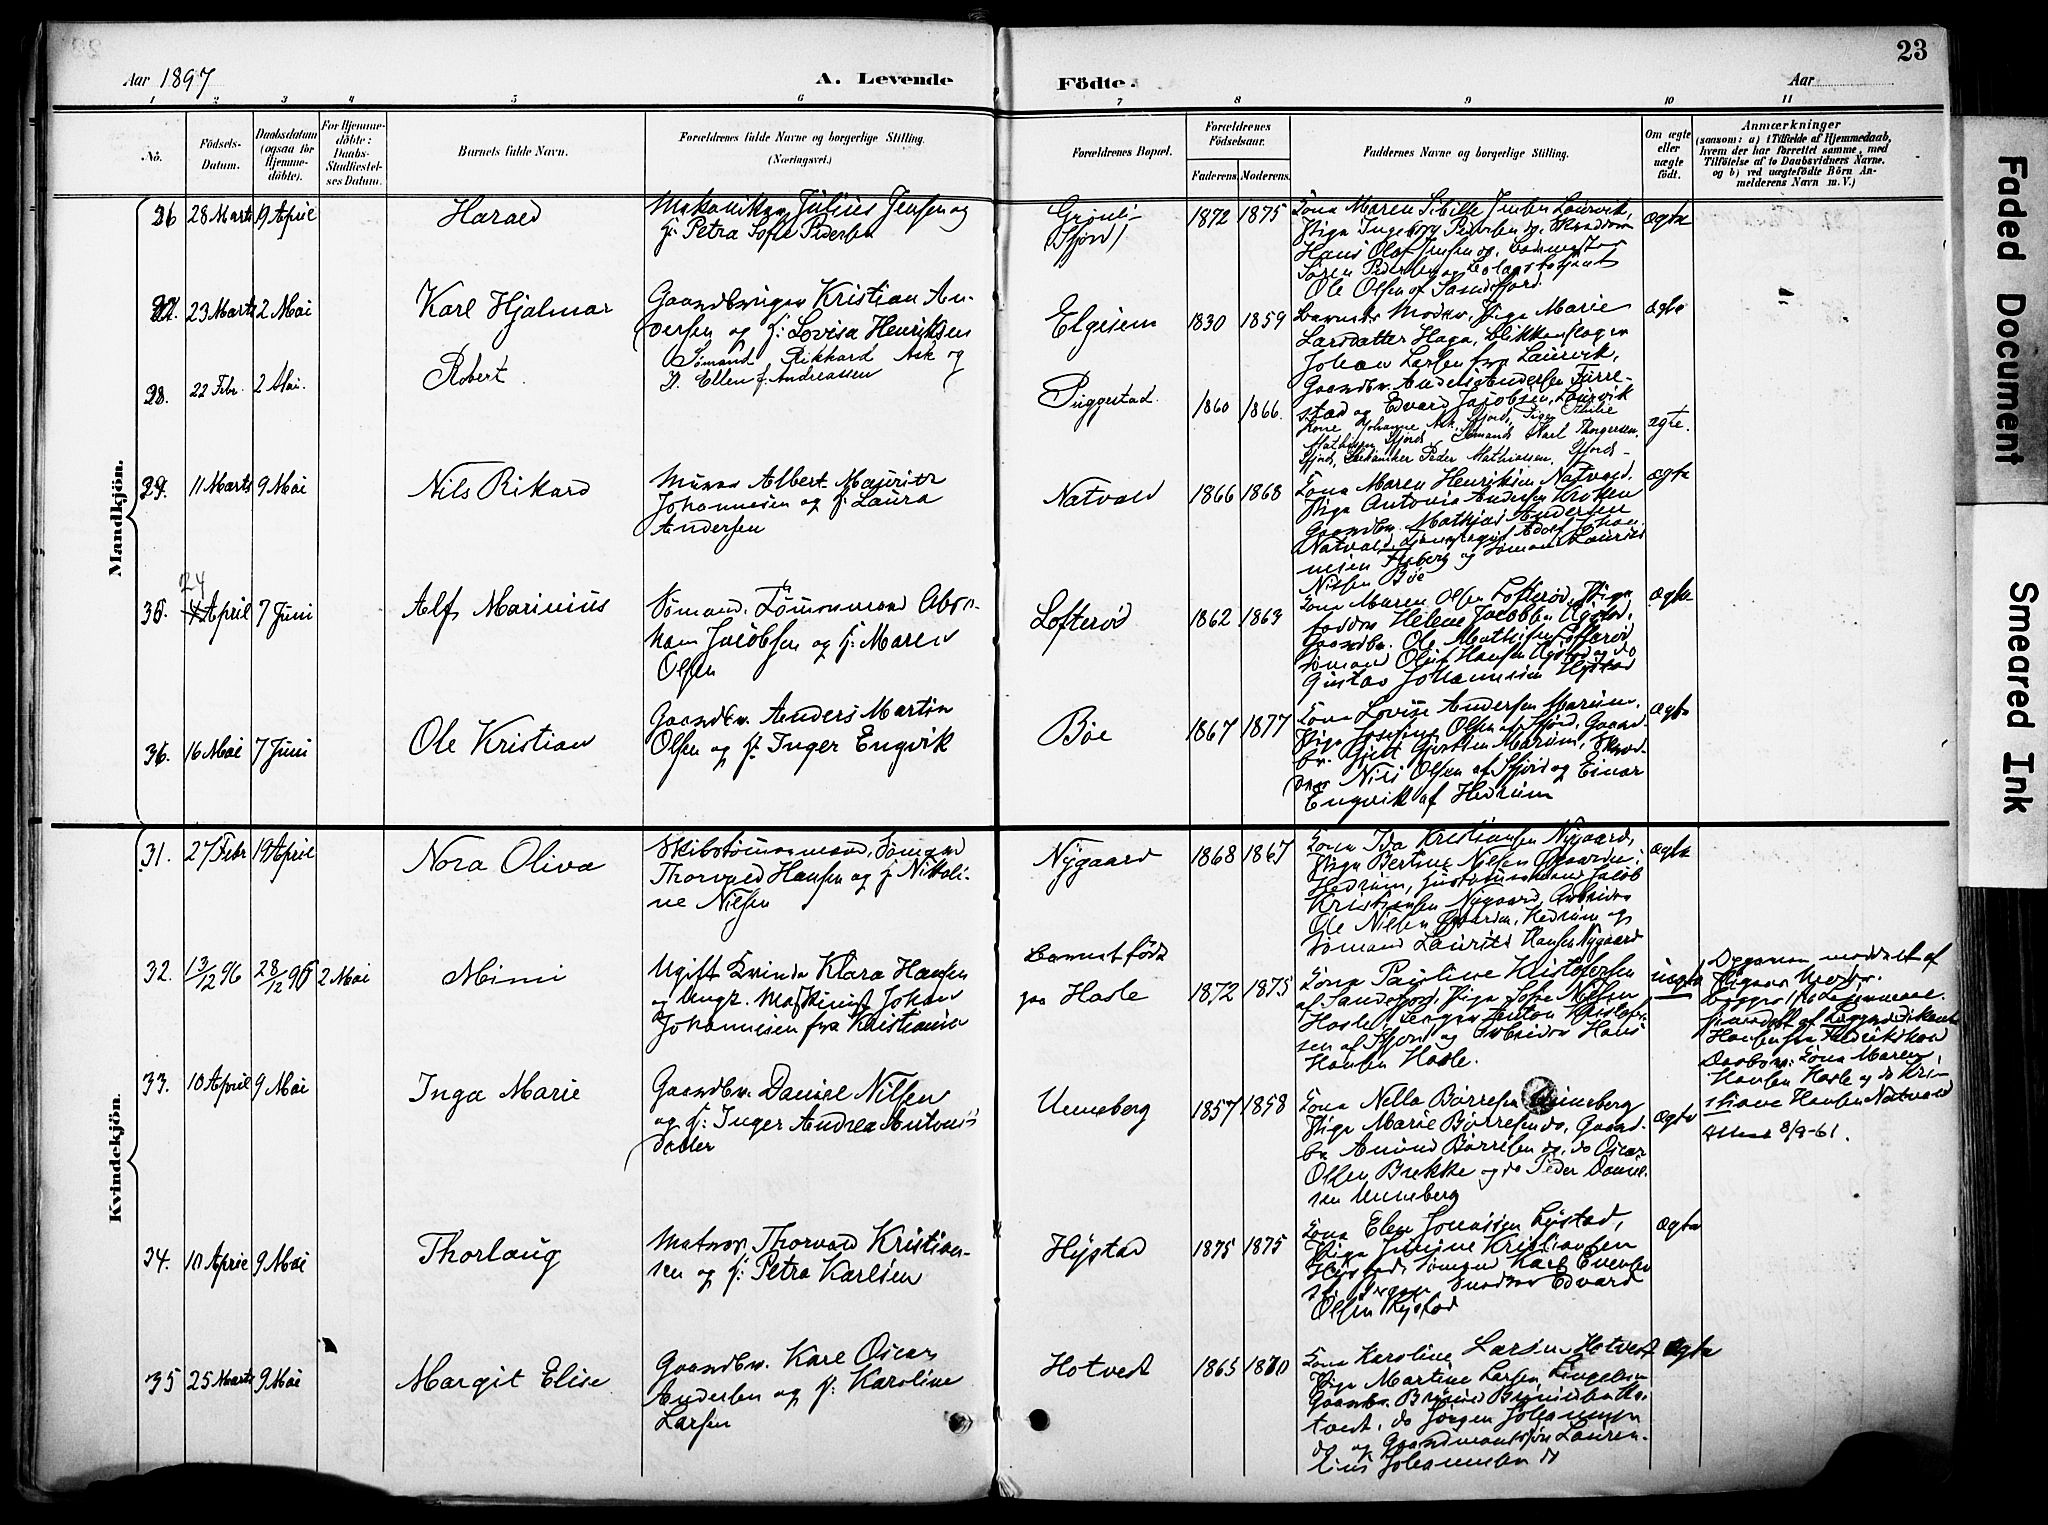 23
Aar 1897
A. Levende
Fødte.
Aar
1 2 3 4 5 6 7 8 9 10 11
No.
Fødsels-
Datum.
Daabsdatum
(ogsaa for
Hjemme-
døbte).
For Hjemme-
døbte:
Daabs-
Stadfæstel-
ses Datum.
Barnets fulde Navn.
Forældrenes fulde Navne og borgerlige Stilling.
(Næringsvei.)
Forældrenes Bopæl.
Forældrenes
Fødselsaar.
Faderens. Moderens.
Faddernes Navne og borgerlige Stilling.
Om ægte
eller
uægte
født.
Anmærkninger
(saasom: a) i Tilfælde af Hjemmedaab,
hvem der har forrettet samme, med
Tilføielse af to Daabsvidners Navne.
og b) ved uægtefødte Børn An-
melderens Navn m. V.)
Mandkjøn.
26 28 Marts 19 April
Harald
Julius Jensen og
f: Petra Sofie Pedersen
1872 1875
Maren Sibille Jensen Laurvik,
Pige Ingeborg Pedersen og
Hans Olaf Jensen og
Søren Pedersen og
Ole Olsen af Sandefjord.
ægte
27. 23 Marts 2 Mai
Karl Hjalmar
Gaardbruger Kristian An-
dersen og f: Lovisa Henriksen
Elgesem
1830 1859
Barnets Moder, Pige Marie
Larsdatter Haga, Blikkenslager
Johan Larsen fra Laurvik,
ægte
28. 22 Febr. 2 Mai.
Robert
Sømand Rikhard Ask og
H. Ellen f. Andreassen
Puggestad.
1860 1866.
Gaardbr. Anders Andersen Furre-
stad og Edvard Jacobsen, Laurvik
Kone Johanne Ask, Sfjord, Pige
Mathisen Sfjord, Sømand Karl Thorgersen,
Sfjord, Peder Mathisen, Sfjord
ægte.
29. 11 Marts 9 Mai
Nils Rikard
Murer Albert Mauritz
Johannesen og f: Laura
Andersen
Natvald
1866 1868
Kona Maren Henriksen Natvald.
Pige Antonia Andersen
Gaardbr. Mathias Andersen
Natvald, Adolf Johan-
nesen og Sømand Laurits
Nilsen Bøe
ægte
35. 24 April 7 Juni
Alf Marinius
Sømand, Tømmermand Abra-
ham Jacobsen og f: Maren
Olsen
Lofterød
1862 1863
Kona Maren Olsen Lofterød, Pige
Helene Jacobsen
Gaardbr. Ole Mathisen Lofterød
Sømand Oluf Hansen Hystad og do
Gustav Johannesen Hystad
ægte
36. 16 Mai 7 Juni
Ole Kristian
Gaardbr. Anders Martin
Olsen og f: Inger Engvik
Bøe
1867 1877
Kona Lovise Andersen Marum,
Pige Josefine Olsen af Sfjord, Gaard-
br. Marum,
Nils Olsen af Sfjord og Einar
Engvik af Hedrum
ægte
Kvindekjøn.
31. 27 Febr 19 April
Nora Oliva
Skibstømmermand, Sømand
Thorvald Hansen og f: Nikoli-
ne Nilsen
Nygaard
1868 1867
Kona Ida Kristiansen Nygaard,
Pige Bertine Nilsen
Hedrum, Hustømmermand Jakob
Kristiansen Nygaard, Arbeider
Ole Nilsen Hedrum og
Sømand Laurits Hansen Nygaard
ægte
32. 13/12 96 28/12 96 2 Mai
Mimi
Ugift Kvinde Klara Hansen
og Ungk. Maskinist Johan
Johannesen fra Kristiania
Barnet født
paa Hasle
1872 1875
Kona Pauline Kristofersen
af Sandefjord, Pige Sofie Nilsen
Hasle, Anton Kristofer-
sen af Sfjord og Arbeider Hans
Hansen Hasle.
uægte
Opgaven meddelt af
Pigens Moder.
Hansen fra Fredrikshald
Daabsv. Kona Maren
Hansen Hasle og do Kri-
stiane Hansen Natvald
Attest 8/9-61.
33. 10 April 9 Mai
Inga Marie
Gaardbr. Daniel Nilsen
og f: Inger Andrea Antonis-
datter
Unneberg
1857 1858
Kona Nella Børresen Unneberg
Pige Marie Børresen do, Gaard-
br Amund Børresen og do Oscar
Olsen Brekke og do Peder Daniel-
sen Unneberg
ægte
34. 10 April 9 Mai
Thorlaug
Matros Thorvald Kristian-
sen og f: Petra Karlsen
Hystad
1875 1875
Kona Elen Jonassen Hystad,
Pige Kristiansen
Hystad, Sømand Karl Evensen
Edvard
Olsen Hystad
ægte
35 25 Marts 9 Mai
Margit Elise
Gaardbr. Karl Oscar
Andersen og f: Karoline
Larsen
Hotvedt
1865 1870
Kona Karoline Larsen Hotvedt
Pige Martine Larsen
Gaardbr. Ho-
tvedt, do Jørgen Johannesen
do og Gaardmandssøn Lauren-
tius Johannesen do
ægte
Faded Document
Smeared Ink